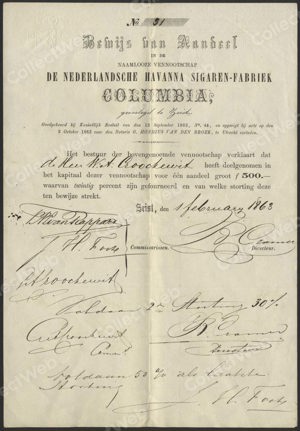 No 31
Bewijs van Aandeel
IN DE
NAAMLOOZE VENNOOTSCHAP
DE NEDERLANDSCHE HAVANNA SIGAREN-FABRIEK
COLUMBIA,
gevestigd te Zeist.
Goedgekeurd bij Koninklijk Besluit van den 12 September 1862, No. 44, en opgerigt bij acte op den
2 October 1862 voor den Notaris G. HENRICUS VAN DEN BROEK, te Utrecht verleden.
Het bestuur der bovengenoemde vennootschap verklaart dat
de Heer W. A. Croockewit heeft deelgenomen in
het kapitaal dezer vennootschap voor één aandeel groot f 500.—
waarvan twintig percent zijn gefourneerd en van welke storting deze
ten bewijze strekt.
Zeist, den 1 february 1863
R Cramer
Commissarissen.
Directeur.
Croockewit
Voldaan 2e Storting 30%
R Cramer
Directeur
Croockewit
Voldaan 50% als laatste
Storting